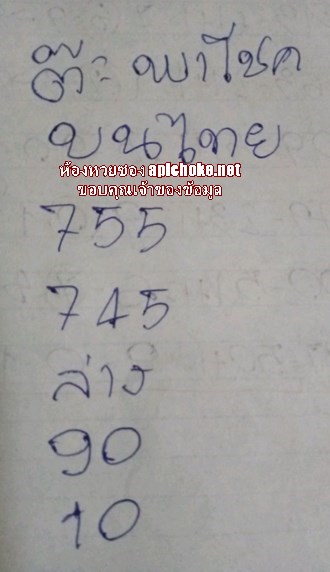 ต๊ะ พาโชค
บนไทย
ห้องหวยซอง apichoke.net
ขอบคุณเจ้าของข้อมูล
755
745
ล่าง
90
10